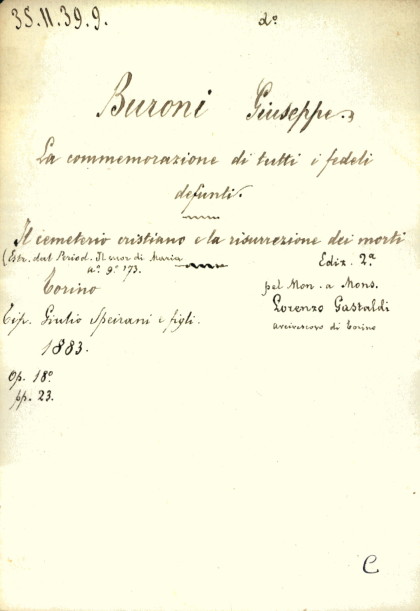 35.11.39.9. do
Buroni Giuseppe.
La commemorazione di tutti i fedeli
defunti.
Il cemeterio cristiano e la risurrezione dei morti
(Estr. dal Period. Il cuor di Maria
a.° 9.° 173.
Ediz. 2.a
Torino
pel Mon. a Mons.
Lorenzo Gastaldi
arcivescovo di Torino
Tip. Giulio Speirani e figli.
1883.
Op. 18°
pp. 23.
C